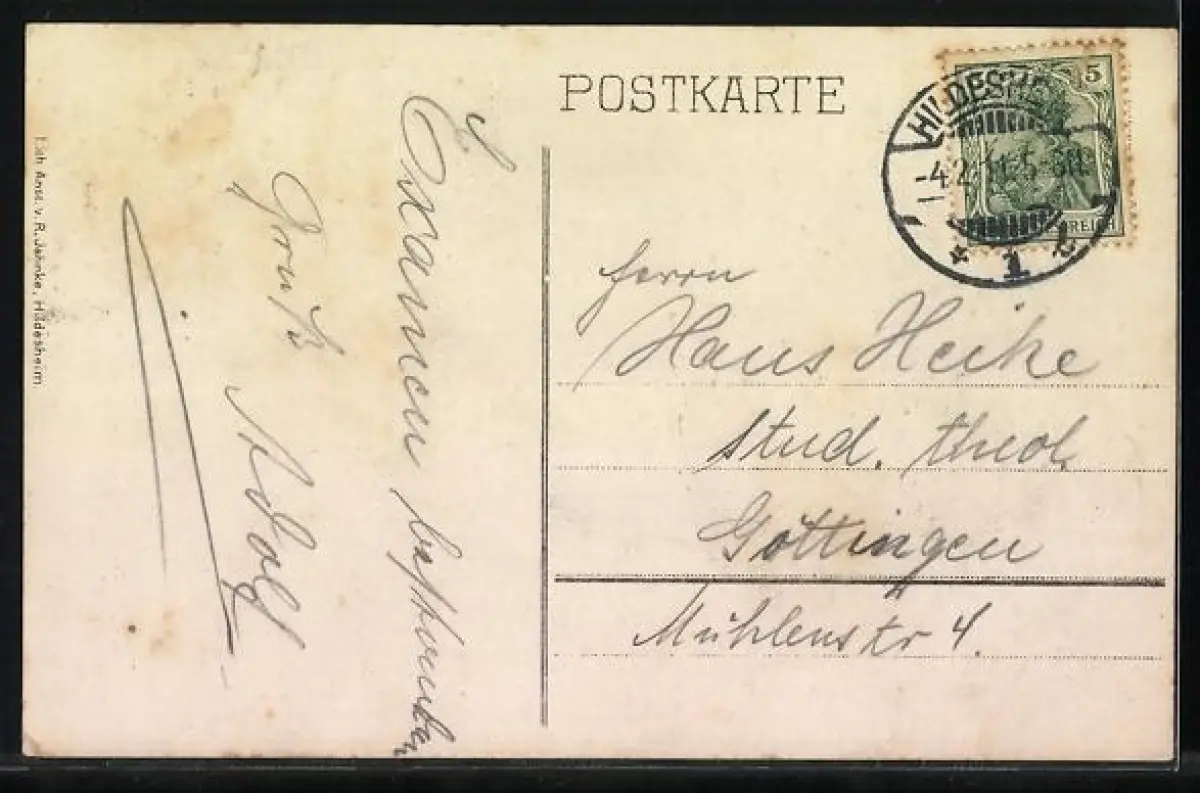 POSTKARTE
HILDESHEIM
-4.2.11.5-6N.
* 1 *
5
REICH
Herrn
Hans Heike
stud. theol.
Göttingen
Mühlenstr 4.
Examen bestanden
Gruß
Adolf
Lith. Anst. v. R. Jahnke, Hildesheim.